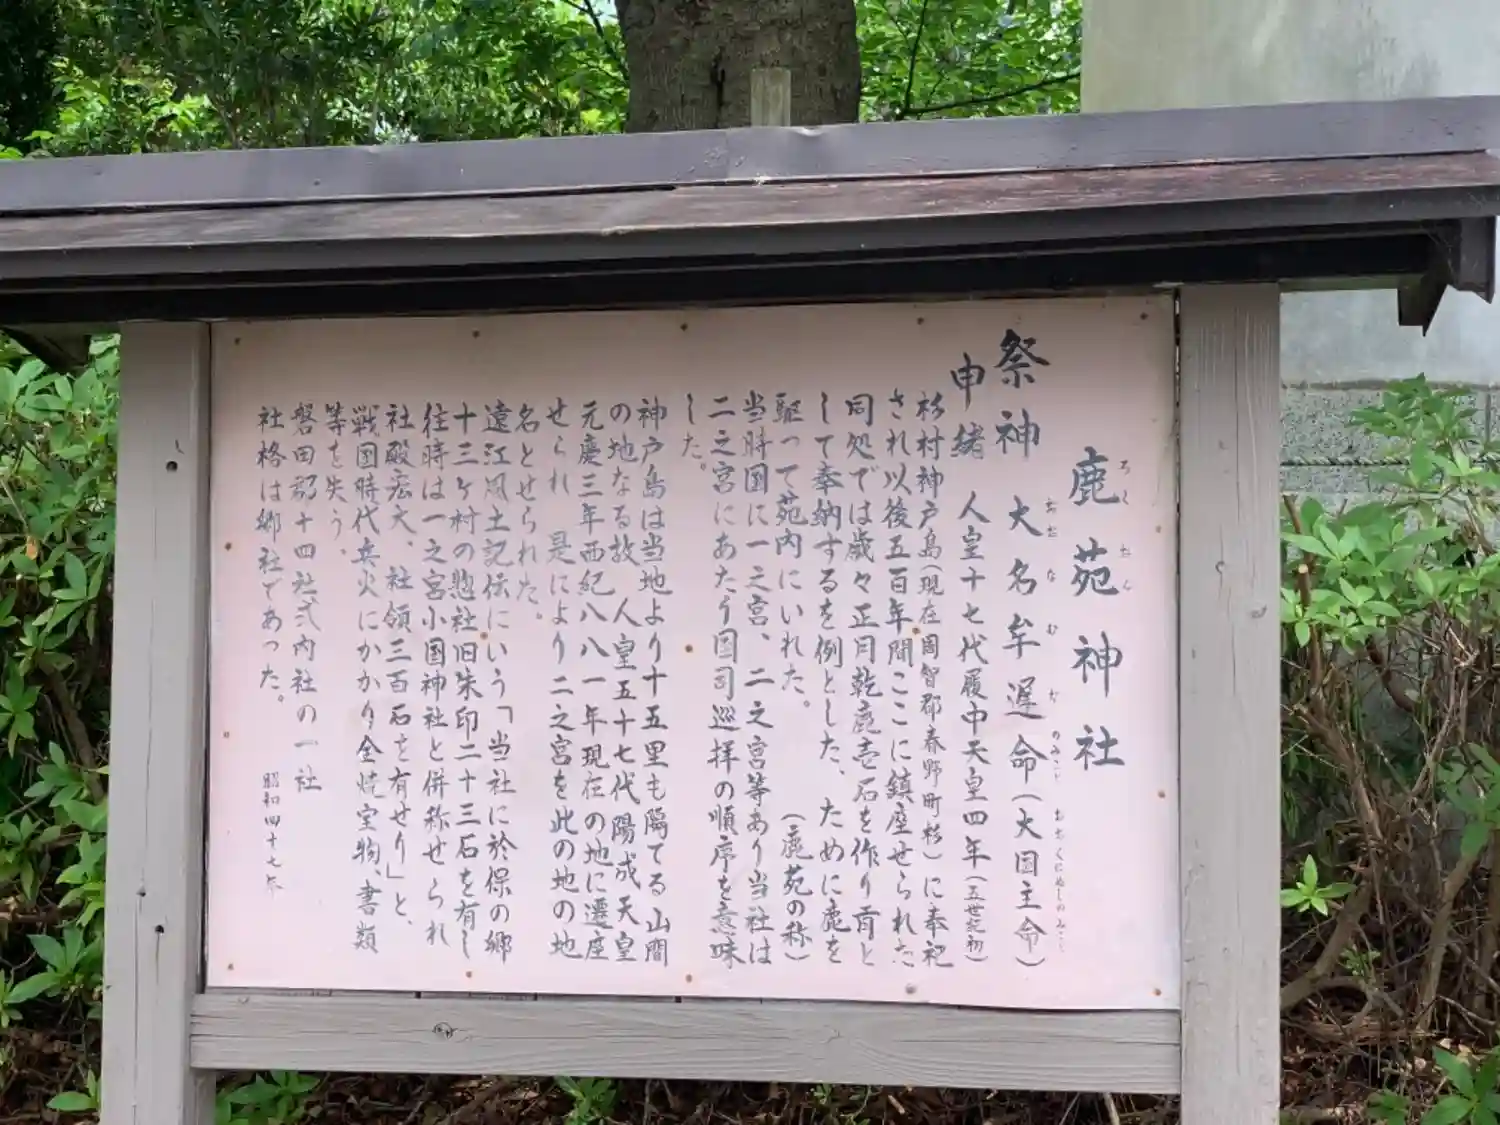 鹿苑神社
ろくおん
祭神 大名牟遅命(大国主命)
おおなむぢのみこと おおくにぬしのみこと
由緒 人皇十七代履中天皇四年(五世紀初)
杉村神戸島(現在周智郡春野町杉)に奉祀
され以後五百年間ここに鎮座せられた
同処では歳々正月乾鹿壱石を作り首と
して奉納するを例とした、ために鹿を
駆って苑内にいれた。 (鹿苑の称)
当時国に一之宮、二之宮等あり当社は
二之宮にあたり国司巡拝の順序を意味
した。
神戸島は当地より十五里も隔てる山間
の地なる故 人皇五十七代陽成天皇
元慶三年西紀八八一年現在の地に遷座
せられ 是により二之宮を此の地の地
名とせられた。
遠江風土記伝にいう「当社に於保の郷
十三ヶ村の惣社旧朱印二十三石を有し
往時は一之宮小国神社と併称せられ
社殿宏大、社領三百石を有せり」と、
戦国時代兵火にかかり全焼宝物、書類
等を失う、
磐田郡十四社式内社の一社
社格は郷社であった。 昭和四十七年